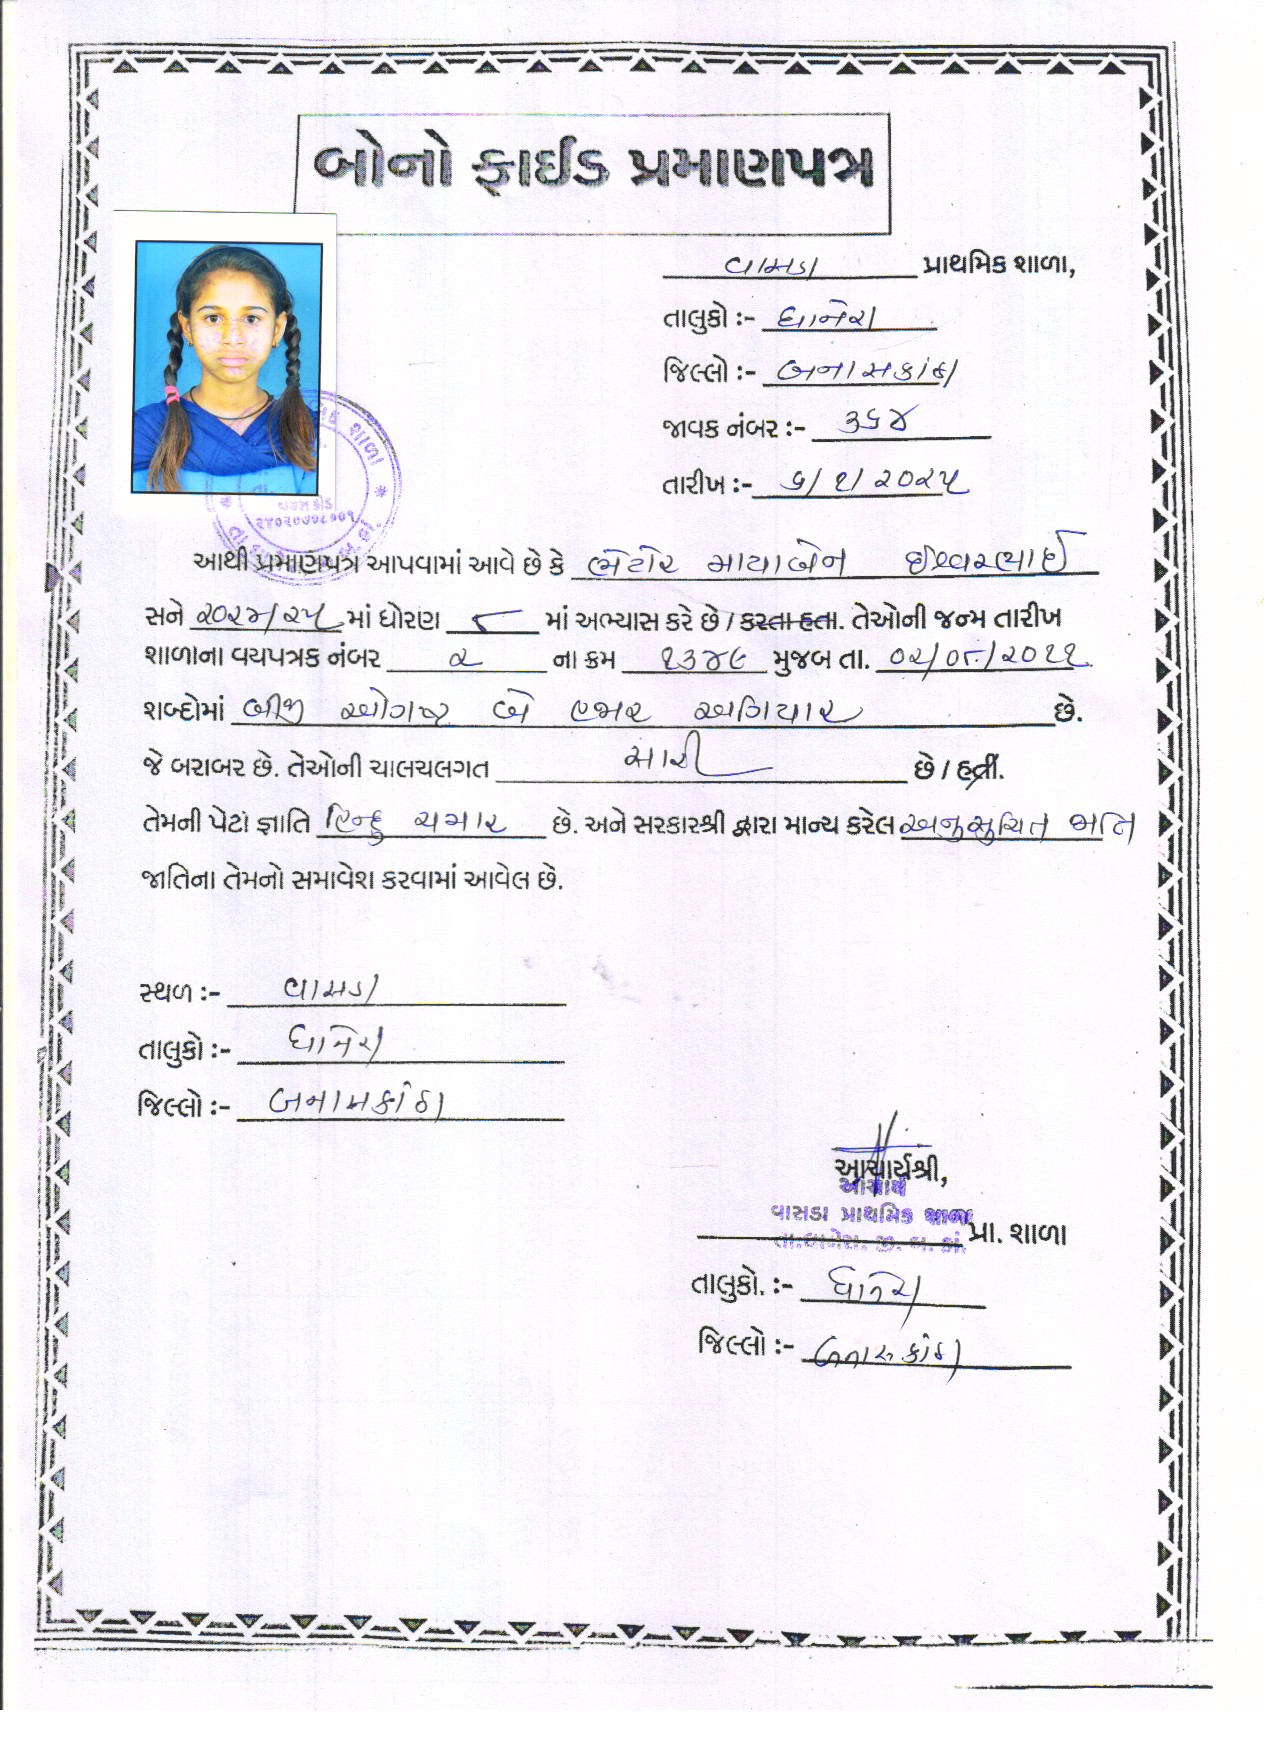 બોનો ફાઈડ પ્રમાણપત્ર
વાસડા પ્રાથમિક શાળા,
તાલુકો :- ધાનેરા
જિલ્લો :- બનાસકાંઠા
જાવક નંબર :- ૩૬૪
તારીખ :- ૬/૧/૨૦૨૫
આથી પ્રમાણપત્ર આપવામાં આવે છે કે ભટોર માયાબેન ઈશ્વરભાઈ
સને ૨૦૨૪/૨૫ માં ધોરણ ૮ માં અભ્યાસ કરે છે / કરતા હતા. તેઓની જન્મ તારીખ
શાળાના વયપત્રક નંબર ૨ ના ક્રમ ૧૩૪૯ મુજબ તા. ૦૨/૦૮/૨૦૧૧
શબ્દોમાં બીજી ઓગષ્ટ બે હજાર અગિયાર છે.
જે બરાબર છે. તેઓની ચાલચલગત સારી છે / હતી.
તેમની પેટા જ્ઞાતિ હિન્દુ ચમાર છે. અને સરકારશ્રી દ્વારા માન્ય કરેલ અનુસુચિત જાતિ
જાતિના તેમનો સમાવેશ કરવામાં આવેલ છે.
સ્થળ :- વાસડા
તાલુકો :- ધાનેરા
જિલ્લો :- બનાસકાંઠા
આચાર્યશ્રી,
આચાર્ય
વાસડા પ્રાથમિક શાળા
પ્રા. શાળા
તાલુકો. :- ધાનેરા
જિલ્લો :- બનાસકાંઠા